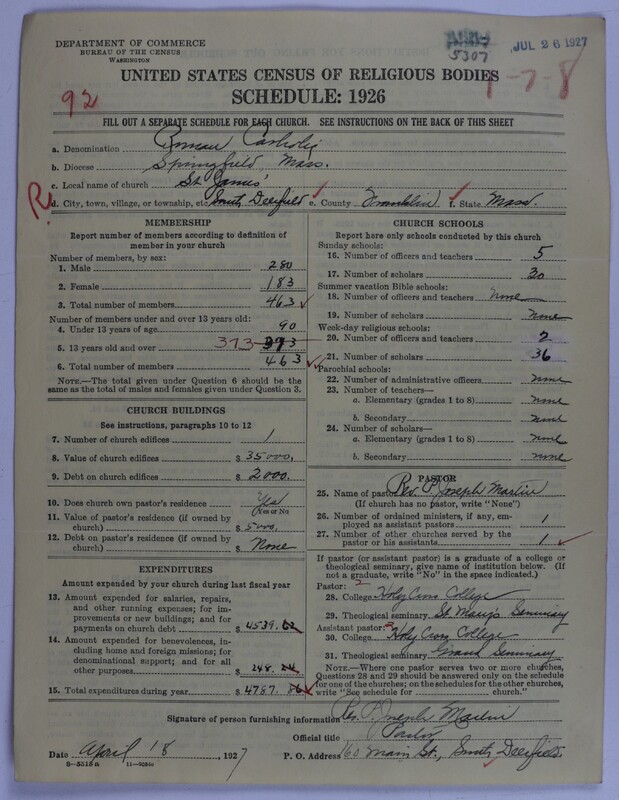 DEPARTMENT OF COMMERCE
BUREAU OF THE CENSUS
WASHINGTON
5307
JUL 26 1927
UNITED STATES CENSUS OF RELIGIOUS BODIES
1-7-8
92
SCHEDULE: 1926
FILL OUT A SEPARATE SCHEDULE FOR EACH CHURCH. SEE INSTRUCTIONS ON THE BACK OF THIS SHEET
a. Denomination Roman Catholic
b. Diocese Springfield, Mass.
c. Local name of church St James'
R
d. City, town, village, or township, etc. South Deerfield e. County Franklin f. State Mass.
MEMBERSHIP
Report number of members according to definition of
member in your church
Number of members, by sex:
1. Male 280
2. Female 183
3. Total number of members 463
Number of members under and over 13 years old:
4. Under 13 years of age 90
5. 13 years old and over 373 373
6. Total number of members 463
NOTE.—The total given under Question 6 should be the
same as the total of males and females given under Question 3.
CHURCH BUILDINGS
See instructions, paragraphs 10 to 12
7. Number of church edifices 1
8. Value of church edifices $ 35000.
9. Debt on church edifices $ 2000.
10. Does church own pastor's residence Yes
(Yes or No)
11. Value of pastor's residence (if owned by
church) $ 5000.
12. Debt on pastor's residence (if owned by
church) $ None
EXPENDITURES
Amount expended by your church during last fiscal year
13. Amount expended for salaries, repairs,
and other running expenses; for im-
provements or new buildings; and for
payments on church debt $ 4539. 62
14. Amount expended for benevolences, in-
cluding home and foreign missions; for
denominational support; and for all
other purposes 248. 24
15. Total expenditures during year $ 4787. 86
CHURCH SCHOOLS
Report here only schools conducted by this church
Sunday schools:
16. Number of officers and teachers 5
17. Number of scholars 30
Summer vacation Bible schools:
18. Number of officers and teachers None
19. Number of scholars none
Week-day religious schools:
20. Number of officers and teachers 2
21. Number of scholars 36
Parochial schools:
22. Number of administrative officers none
23. Number of teachers—
a. Elementary (grades 1 to 8) none
b. Secondary none
24. Number of scholars—
a. Elementary (grades 1 to 8) none
b. Secondary none
PASTOR
25. Name of pastor Rev. P. Joseph
(If church has no pastor, write "None")
26. Number of ordained ministers, if any, em-
ployed as assistant pastors 1
27. Number of other churches served by the
pastor or his assistants 1
If pastor (or assistant pastor) is a graduate of a college or
theological seminary, give name of institution below. (If
not a graduate, write "No" in the space indicated.)
Pastor: 2
28. College Holy Cross College
29. Theological seminary St Mary's Seminary
Assistant pastor:
30. College Holy Cross College
31. Theological seminary Grand Seminary
NOTE.—Where one pastor serves two or more churches,
Questions 28 and 29 should be answered only on the schedule
for one of the churches; on the schedules for the other churches,
write "See schedule for church."
Signature of person furnishing information Rev. P. Joseph
Official title Pastor
Date April 18, 1927 P. O. Address 60 Main St., South Deerfield.
8-5318 a 11-9034